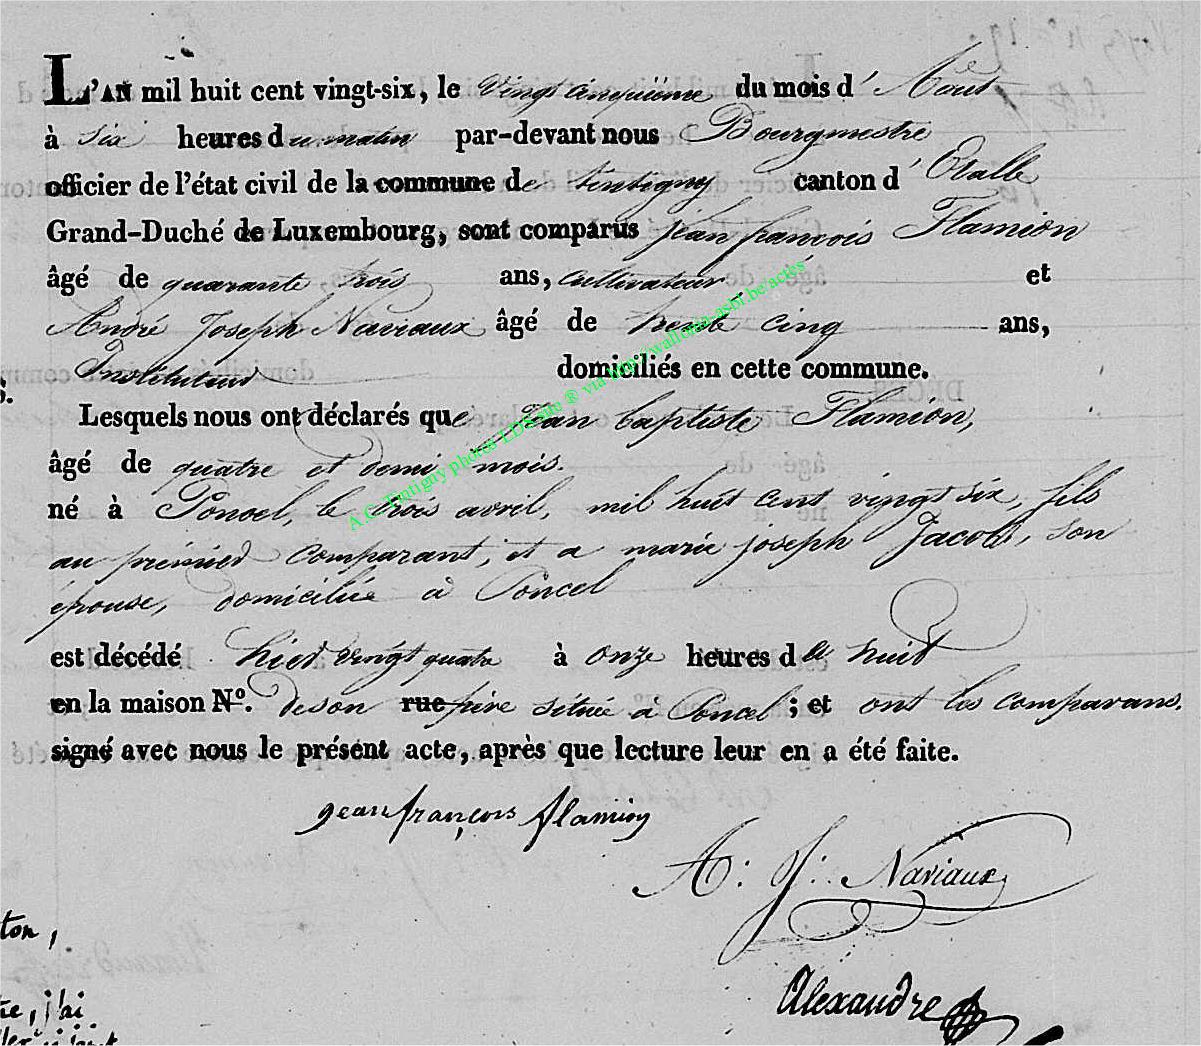 L'AN mil huit cent vingt-six, le vingt cinquième du mois d' Août
à six heures du matin par-devant nous Bourgmestre
officier de l'état civil de la commune de tintigny canton d' Etalle
Grand-Duché de Luxembourg, sont comparus jean françois Flamion
âgé de quarante trois ans, cultivateur et
André Joseph Naviaux âgé de trente cinq ans,
Instituteur domiciliés en cette commune.
Lesquels nous ont déclarés que Jean baptiste Flamion,
âgé de quatre et demi mois.
né à Poncel, le trois avril, mil huit cent vingt six, fils
au prémier comparant, et a marie joseph Jacob, son
épouse, domiciliée à Poncel
est décédé hier vingt quatre à onze heures de nuit
en la maison N°. de son rue père située à Poncel ; et ont les comparans
signé avec nous le présent acte, après que lecture leur en a été faite.
jean françois flamion
A: J: Naviaux
Alexandre
A.C. Tintigny photos LDS site ® via http://wallonia-asbl.be/actes
ton,
j'ai